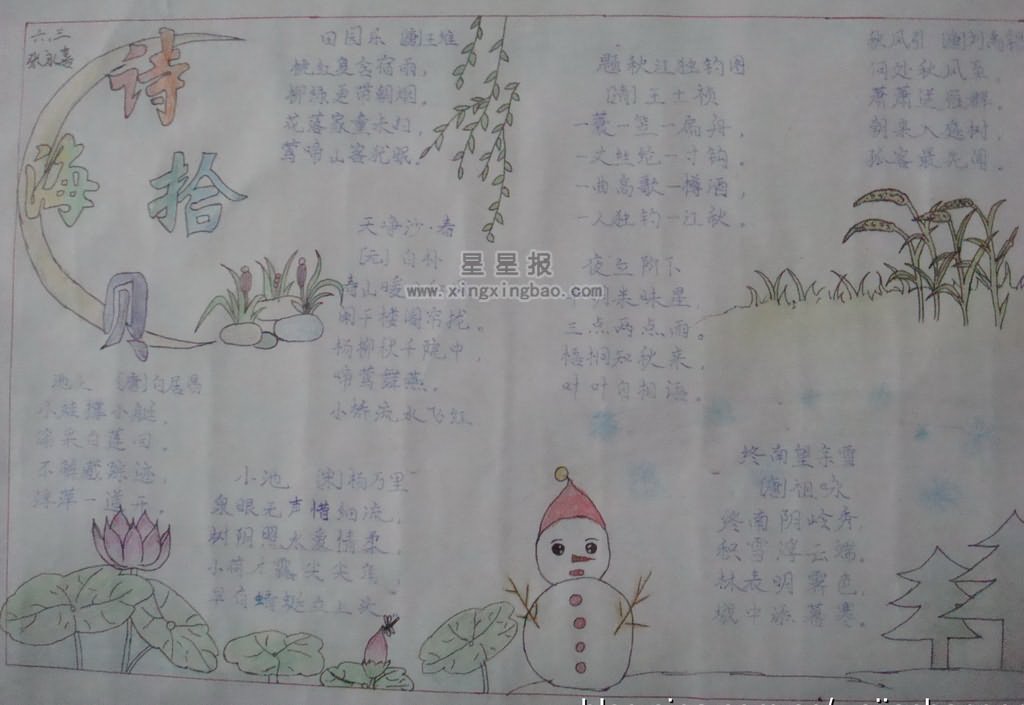 六.三
张永嘉
诗海拾贝
田园乐 [唐]王维
桃红复含宿雨，
柳绿更带朝烟。
花落家童未归，
莺啼山客犹眠。
题秋江独钓图
[清]王士祯
一蓑一笠一扁舟，
一丈丝纶一寸钩。
一曲高歌一樽酒，
一人独钓一江秋。
秋风引 [唐]刘禹锡
何处秋风至，
萧萧送雁群。
朝来入庭树，
孤客最先闻。
天净沙·春
[元]白朴
春山暖
阑干楼阁帘栊。
杨柳秋千院中，
啼莺舞燕。
小桥流水飞红
夜立阶下
三点两点雨。
梧桐知秋来，
叶叶自相语。
池上 [唐]白居易
小娃撑小艇，
偷采白莲回。
不解藏踪迹，
浮萍一道开。
小池 [宋]杨万里
泉眼无声惜细流，
树阴照水爱情柔，
小荷才露尖尖角，
早有蜻蜓立上头
终南望余雪
[唐]祖咏
终南阴岭秀，
积雪浮云端。
林表明霁色，
城中添暮寒。
星星报
www.xingxingbao.com